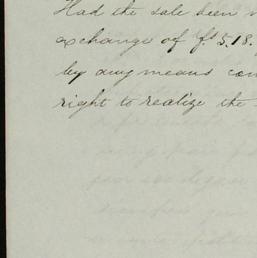 Had the sale been
exchange of fs 5.18.
by any means con
right to realize the